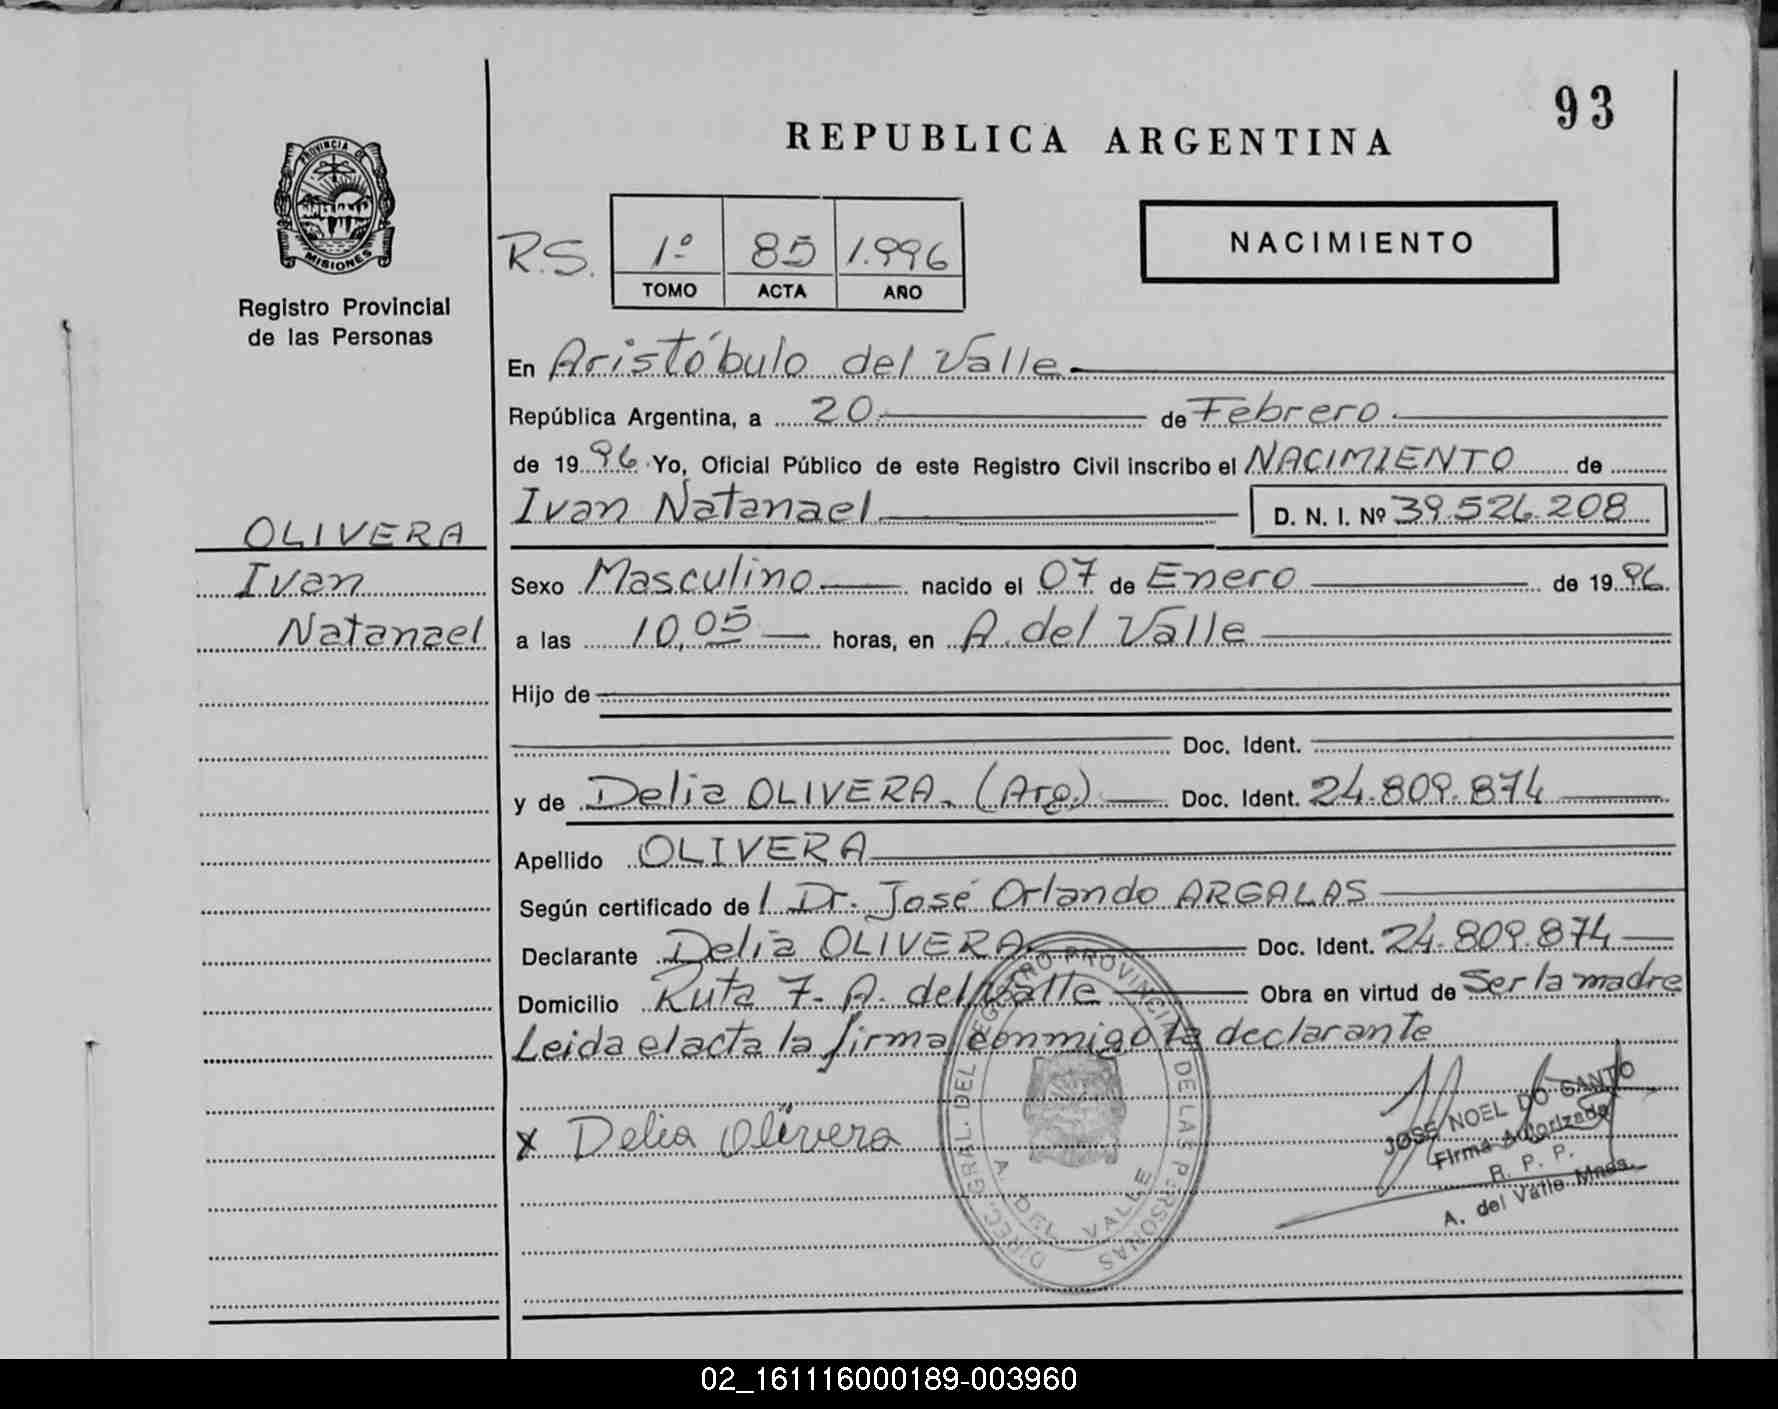 93
REPUBLICA ARGENTINA
PROVINCIA DE
MISIONES
Registro Provincial
de las Personas
R.S. 1º 85 1.996
TOMO ACTA AÑO
NACIMIENTO
En Aristóbulo del Valle.
República Argentina, a 20 de Febrero.
de 1996 Yo, Oficial Público de este Registro Civil inscribo el NACIMIENTO de
Ivan Natanael D. N. I. Nº 39.526.208
OLIVERA
Ivan
Natanael
Sexo Masculino nacido el 07 de Enero de 1996.
a las 10,05 horas, en A. del Valle
Hijo de
Doc. Ident.
y de Delia OLIVERA. (Arg.) Doc. Ident. 24.809.874
Apellido OLIVERA
Según certificado de l Dr. José Orlando ARGALAS
Declarante Delia OLIVERA Doc. Ident. 24.809.874
Domicilio Ruta 7. A. del Valle Obra en virtud de Ser la madre
Leida el acta la firma conmigo la declarante
x Delia Olivera
DIREC. GRAL. DEL REGISTRO PROVINCIAL DE LAS PERSONAS
A. DEL VALLE
JOSE NOEL DO SANTO
Firma Autorizada
R. P. P.
A. del Valle Mnes.
02_161116000189-003960